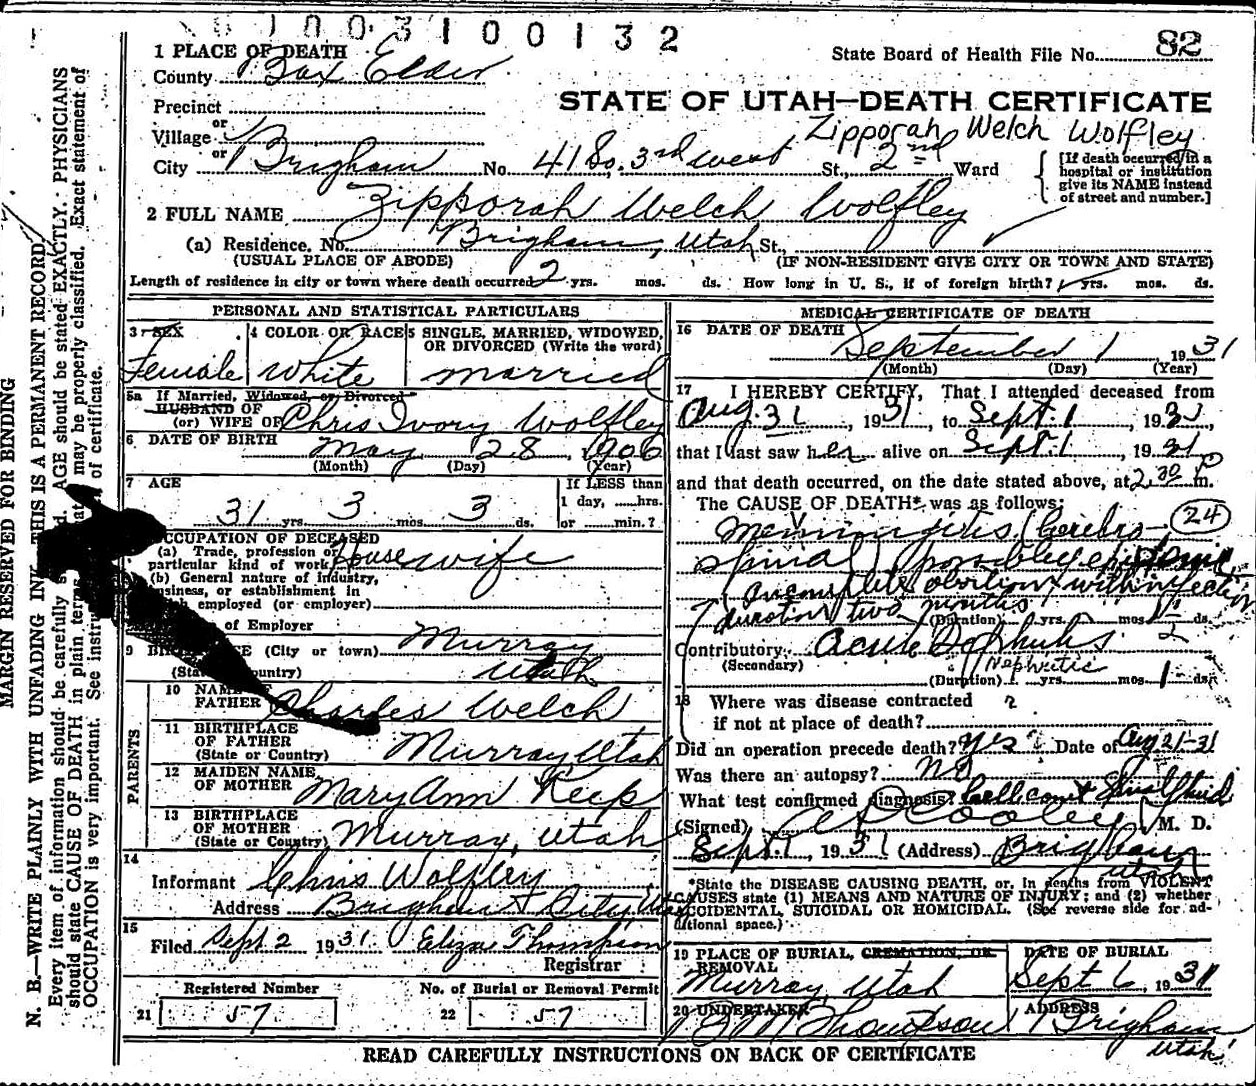 1003100132
1 PLACE OF DEATH
State Board of Health File No. 82
County Box Elder
STATE OF UTAH—DEATH CERTIFICATE
Precinct
or
Village
Zipporah Welch Wolfley
or
City Brigham No. 41 So. 3rd West St., 2nd Ward
[If death occurred in a hospital or institution give its NAME instead of street and number.]
2 FULL NAME Zipporah Welch Wolfley
(a) Residence, No. Brigham, Utah St.,
(USUAL PLACE OF ABODE) (IF NON-RESIDENT GIVE CITY OR TOWN AND STATE)
Length of residence in city or town where death occurred 2 yrs. mos. ds. How long in U. S., if of foreign birth? yrs. mos. ds.
PERSONAL AND STATISTICAL PARTICULARS
3 SEX
Female
4 COLOR OR RACE
White
5 SINGLE, MARRIED, WIDOWED, OR DIVORCED (Write the word)
married
5a If Married, Widowed, or Divorced
HUSBAND OF
(or) WIFE OF Chris Ivory Wolfley
6 DATE OF BIRTH May 28, 1900
(Month) (Day) (Year)
7 AGE
31 yrs. 3 mos. 3 ds.
If LESS than
1 day, hrs.
or min.?
OCCUPATION OF DECEASED
(a) Trade, profession or
particular kind of work Housewife
(b) General nature of industry,
business, or establishment in
which employed (or employer)
of Employer
9 BIRTHPLACE (City or town) Murray
(State or Country) Utah
PARENTS
10 NAME OF FATHER Charles Welch
11 BIRTHPLACE OF FATHER
(State or Country) Murray, Utah
12 MAIDEN NAME OF MOTHER Mary Ann Keep
13 BIRTHPLACE OF MOTHER
(State or Country) Murray, Utah
14
Informant Chris Wolfley
Address Brigham City, Utah
15
Filed Sept 2 1931 Eliza Thompson
Registrar
Registered Number No. of Burial or Removal Permit
21 57 22 57
MEDICAL CERTIFICATE OF DEATH
16 DATE OF DEATH
September 1, 1931
(Month) (Day) (Year)
17 I HEREBY CERTIFY, That I attended deceased from
Aug. 31, 1931, to Sept. 1, 193
that I last saw her alive on Sept. 1, 1931
and that death occurred, on the date stated above, at 2:30 P m.
The CAUSE OF DEATH* was as follows:
Meningitis, Cerebro- 24
spinal possibly epidemic
incomplete abortion with infection
duration two months
(Duration) yrs. mos. ds.
Contributory Acute
(Secondary) Nephritic
(Duration) yrs. mos. 1 ds.
18 Where was disease contracted
if not at place of death? ?
Did an operation precede death? Yes Date of Aug 21-31
Was there an autopsy? No
What test confirmed diagnosis? Cell count Spinal fluid
(Signed) Cooley M. D.
Sept. 1, 1931 (Address) Brigham
Utah
*State the DISEASE CAUSING DEATH, or, in deaths from VIOLENT
CAUSES state (1) MEANS AND NATURE OF INJURY; and (2) whether
ACCIDENTAL, SUICIDAL OR HOMICIDAL. (See reverse side for ad-
ditional space.)
19 PLACE OF BURIAL, CREMATION, OR REMOVAL
Murray, Utah
DATE OF BURIAL
Sept 6, 1931
20 UNDERTAKER
Thompson
ADDRESS
Brigham
Utah
READ CAREFULLY INSTRUCTIONS ON BACK OF CERTIFICATE
MARGIN RESERVED FOR BINDING
N. B.—WRITE PLAINLY WITH UNFADING INK THIS IS A PERMANENT RECORD
Every item of information should be carefully AGE should be stated EXACTLY. PHYSICIANS
should state CAUSE OF DEATH in plain terms may be properly classified. Exact statement of
OCCUPATION is very important. See of certificate.